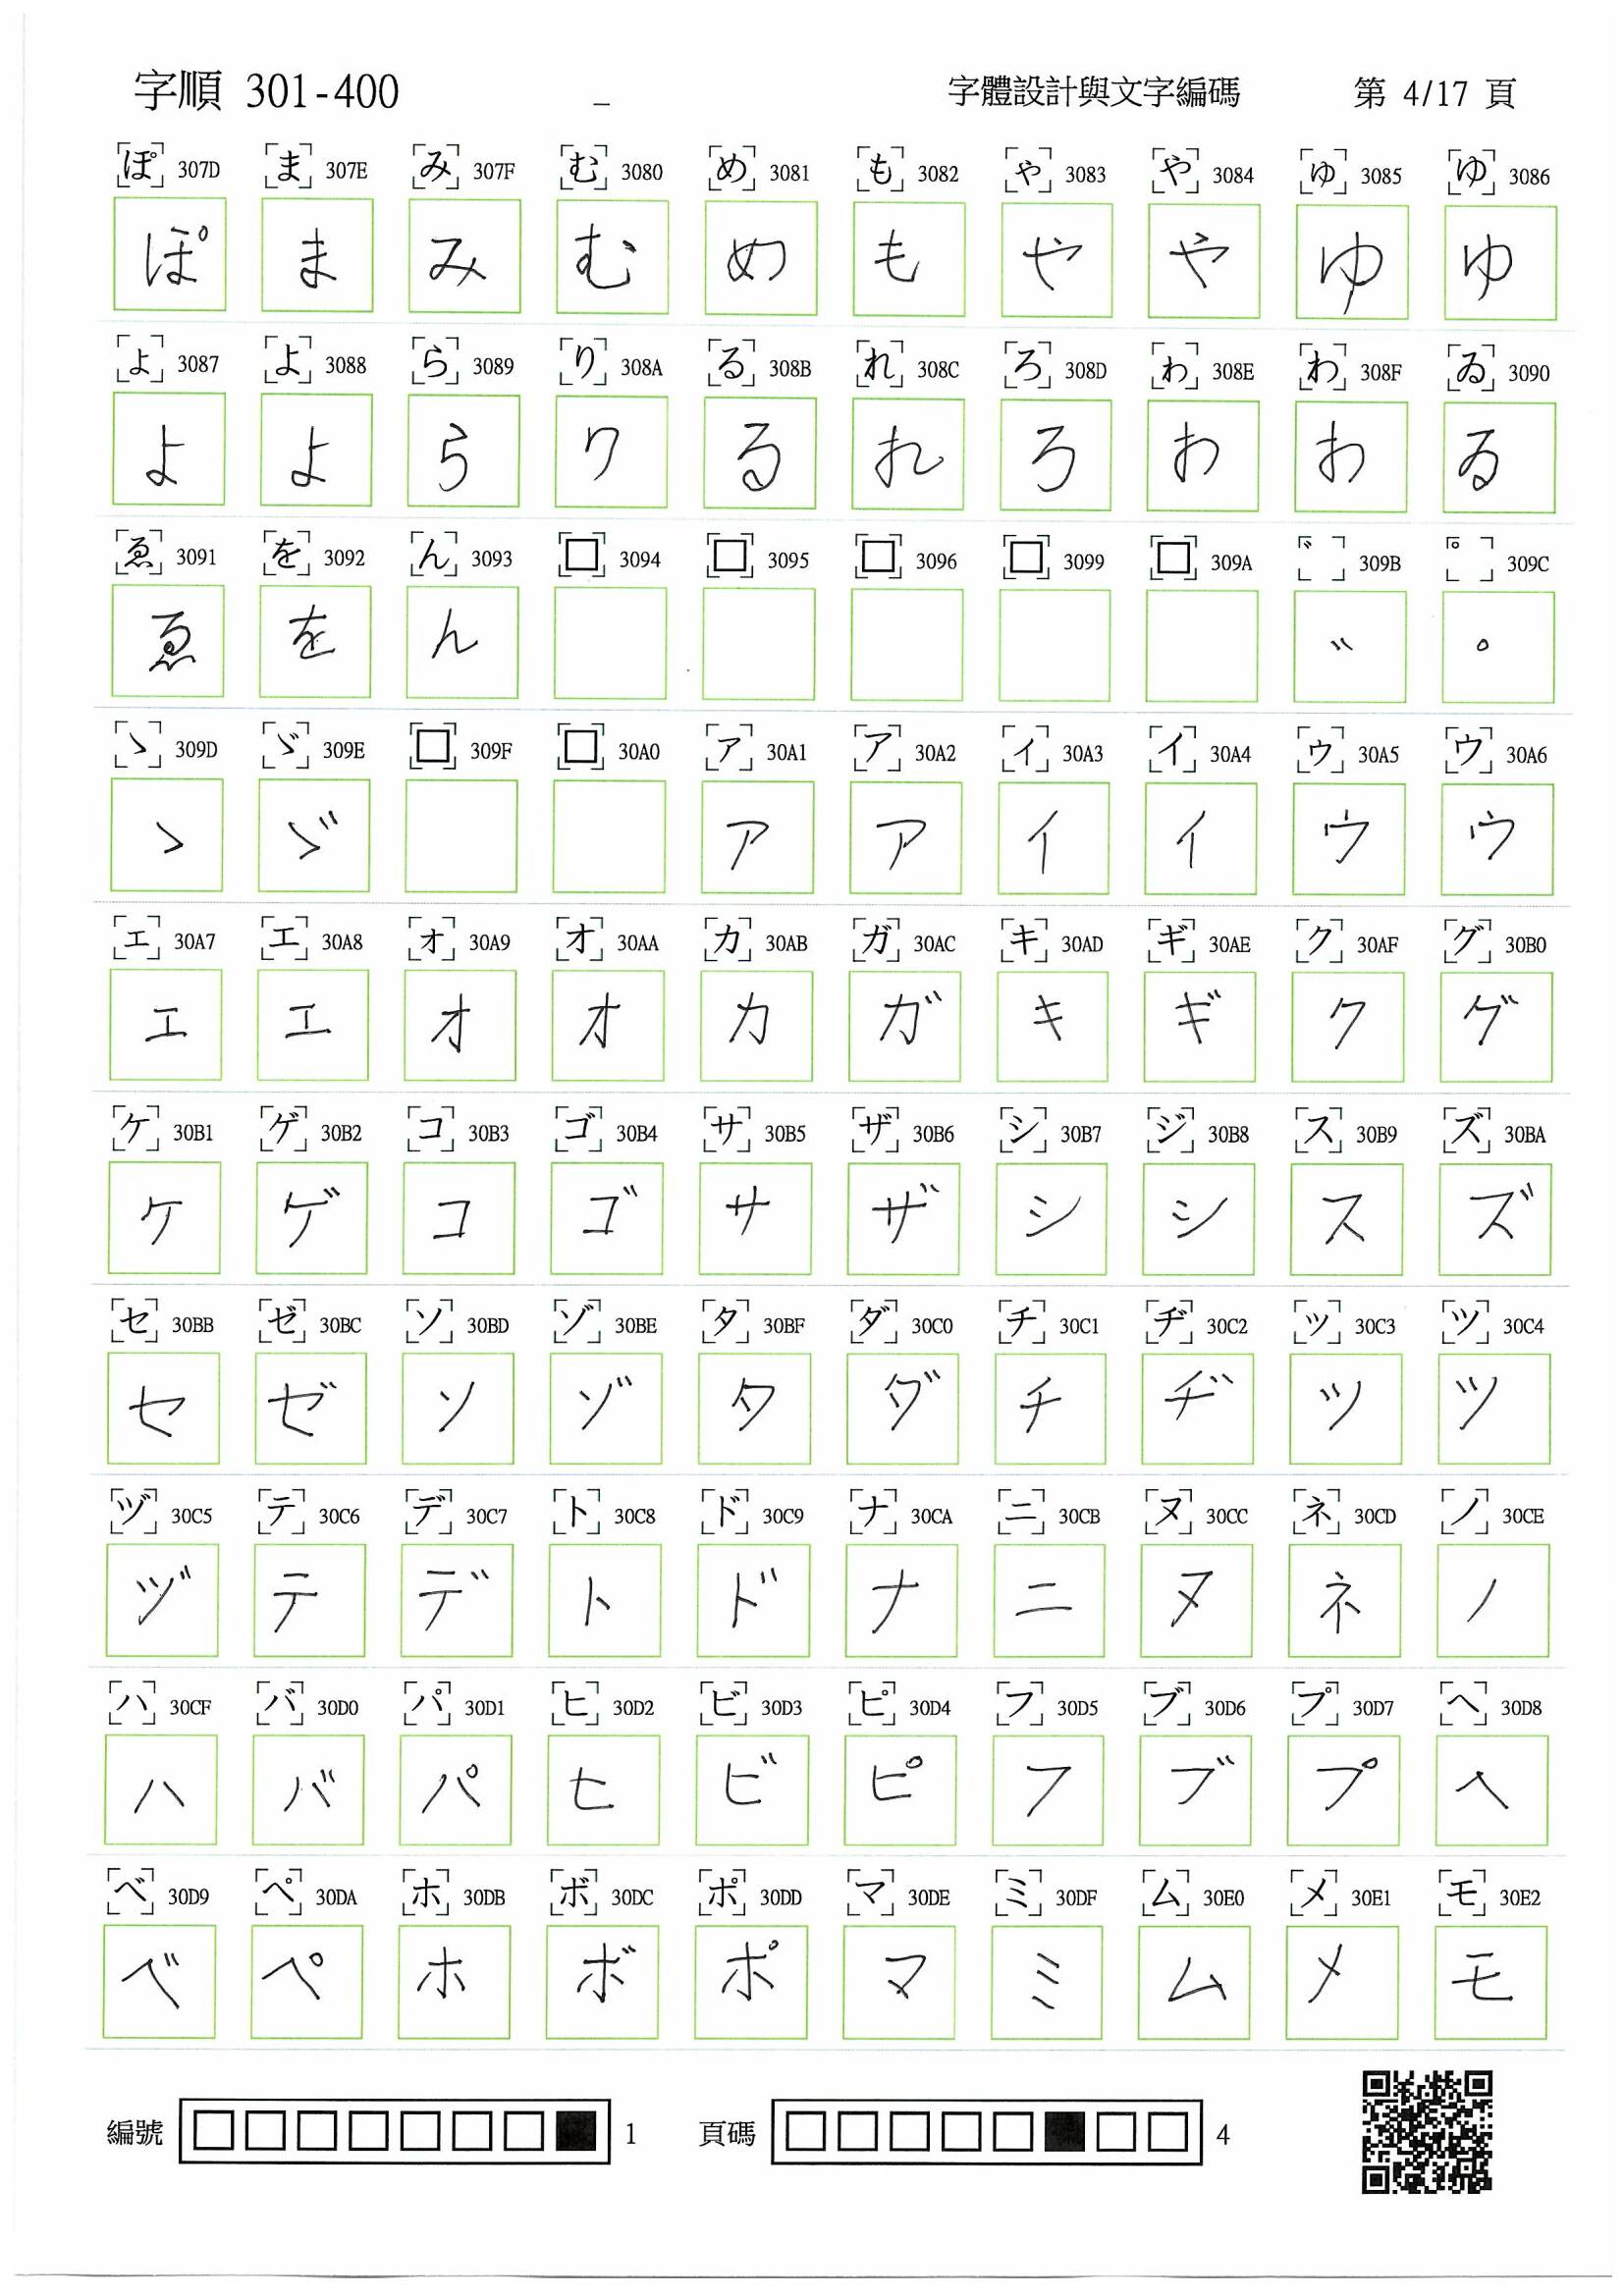 字順 301-400 _ 字體設計與文字編碼 第 4/17 頁
ぽ 307D ま 307E み 307F む 3080 め 3081 も 3082 ゃ 3083 や 3084 ゅ 3085 ゆ 3086
ぽ ま み む め も ゃ や ゅ ゆ
ょ 3087 よ 3088 ら 3089 り 308A る 308B れ 308C ろ 308D ゎ 308E わ 308F ゐ 3090
ょ よ ら り る れ ろ ゎ わ ゐ
ゑ 3091 を 3092 ん 3093 □ 3094 □ 3095 □ 3096 □ 3099 □ 309A ゛ 309B ゜ 309C
ゑ を ん ゛ ゜
ゝ 309D ゞ 309E □ 309F □ 30A0 ァ 30A1 ア 30A2 ィ 30A3 イ 30A4 ゥ 30A5 ウ 30A6
ゝ ゞ ァ ア ィ イ ゥ ウ
ェ 30A7 エ 30A8 ォ 30A9 オ 30AA カ 30AB ガ 30AC キ 30AD ギ 30AE ク 30AF グ 30B0
ェ エ ォ オ カ ガ キ ギ ク グ
ケ 30B1 ゲ 30B2 コ 30B3 ゴ 30B4 サ 30B5 ザ 30B6 シ 30B7 ジ 30B8 ス 30B9 ズ 30BA
ケ ゲ コ ゴ サ ザ シ シ ス ズ
セ 30BB ゼ 30BC ソ 30BD ゾ 30BE タ 30BF ダ 30C0 チ 30C1 ヂ 30C2 ッ 30C3 ツ 30C4
セ ゼ ソ ゾ タ ダ チ ヂ ッ ツ
ヅ 30C5 テ 30C6 デ 30C7 ト 30C8 ド 30C9 ナ 30CA ニ 30CB ヌ 30CC ネ 30CD ノ 30CE
ヅ テ デ ト ド ナ ニ ヌ ネ ノ
ハ 30CF バ 30D0 パ 30D1 ヒ 30D2 ビ 30D3 ピ 30D4 フ 30D5 ブ 30D6 プ 30D7 ヘ 30D8
ハ バ パ ヒ ビ ピ フ ブ プ ヘ
ベ 30D9 ペ 30DA ホ 30DB ボ 30DC ポ 30DD マ 30DE ミ 30DF ム 30E0 メ 30E1 モ 30E2
ベ ペ ホ ボ ポ マ ミ ム メ モ
編號 1 頁碼 4